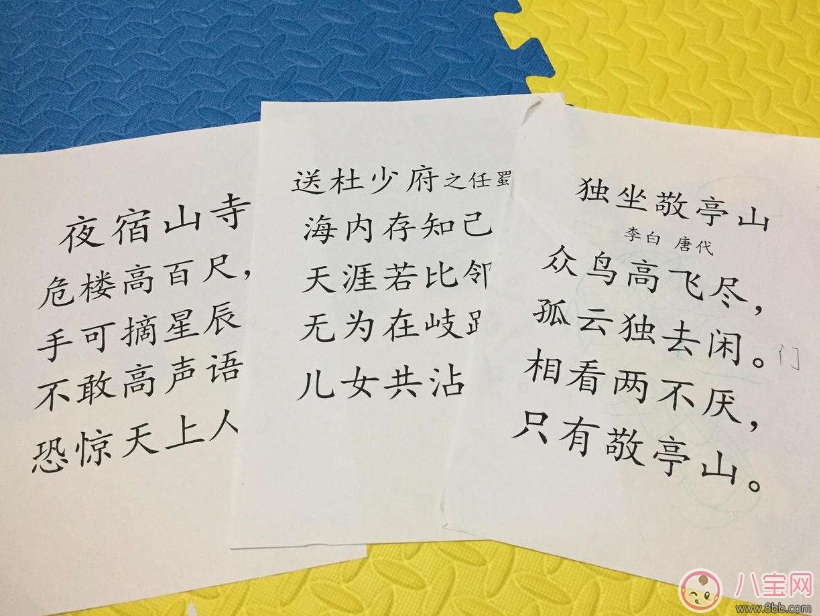 夜宿山寺
危楼高百尺，
手可摘星辰
不敢高声语
恐惊天上人
送杜少府之任蜀
海内存知己
天涯若比邻
无为在岐
儿女共沾
独坐敬亭山
李白 唐代
众鸟高飞尽，
孤云独去闲。
门
相看两不厌，
只有敬亭山。
八宝网
www.8bb.com